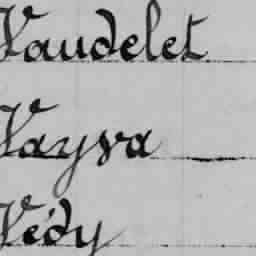 Vaudelet
Vayva
Védy